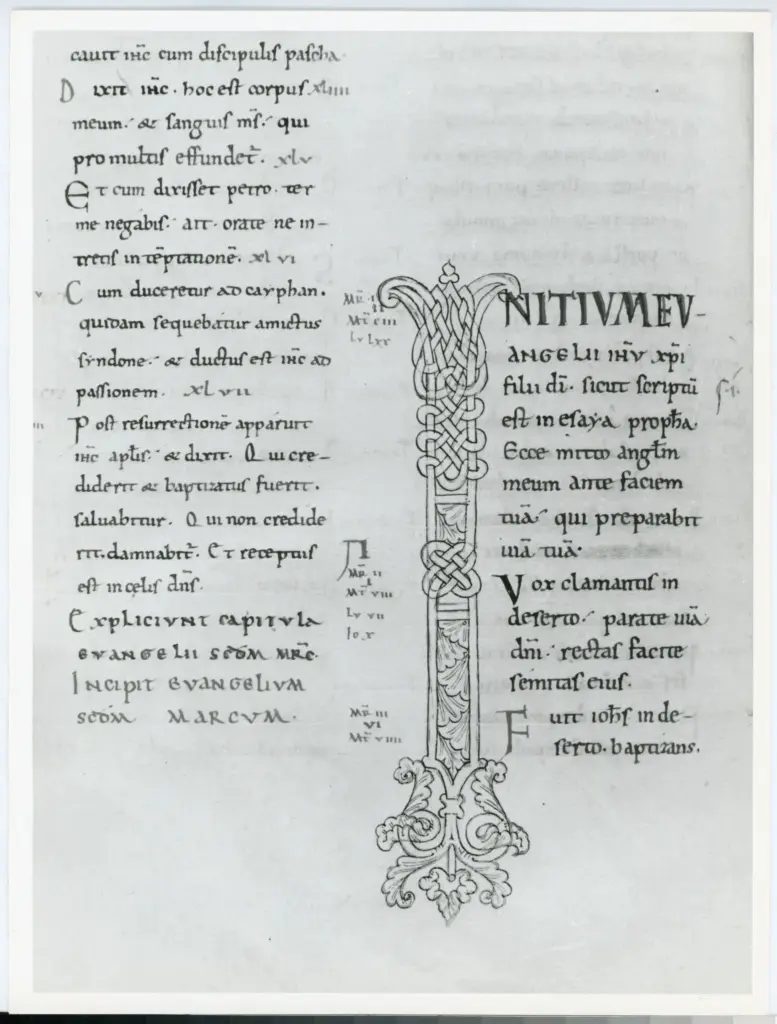 cauit ihc cum discipulis pascha.
Dixit ihc. hoc est corpus xliiii
meum. & sanguis ms. qui
pro multis effundet. xlv
Et cum dixisset petro. ter
me negabis. ait. orate ne in-
tretis in teptatione. xlvi
Cum duceretur ad cayphan.
quidam sequebatur amictus
syndone. & ductus est ihc ad
passionem. xlvii
Post resurrectione apparuit
ihc aplis. & dixit. Qui cre-
diderit & baptizatus fuerit.
saluabitur. Qui non credide
rit. damnabit. Et receptus
est in celis dns.
Expliciunt capitula
euangelii scdm mrc.
Incipit euangelium
scdm marcum.
INITIUM EU-
angelii ihu xpi
filii di. sicut scriptu
est in esaya propha.
Ecce mitto anglm
meum ante faciem
tua. qui preparabit
uia tua.
Vox clamantis in
deserto. parate uia
dni. rectas facite
semitas eius.
Fuit iohs in de-
serto. baptizans.
Mt viii
Lv vii
Io x
Mr iii
vi
Mt viiii